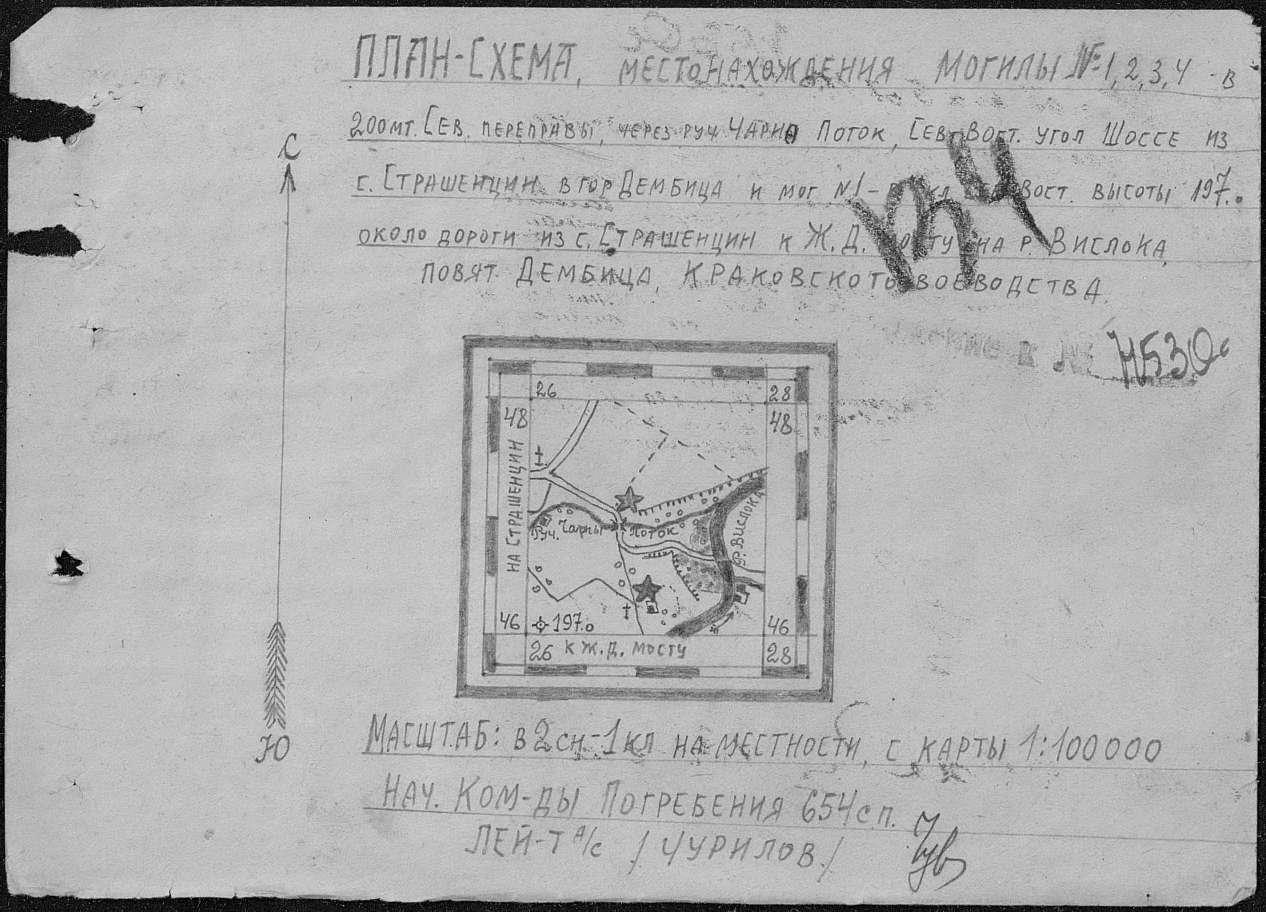 ПЛАН-СХЕМА, МЕСТОНАХОЖДЕНИЯ МОГИЛЫ №1,2,3,4 - в
200мт. СЕВ. ПЕРЕПРАВЫ, ЧЕРЕЗ РУЧ. ЧАРНЫ ПОТОК, СЕВ-ВОСТ. УГОЛ ШОССЕ ИЗ
С. СТРАШЕНЦИН В ГОР ДЕМБИЦА И МОГ. №1- ВОСТ. ВЫСОТЫ 197.0
ОКОЛО ДОРОГИ ИЗ С. СТРАШЕНЦИН К Ж.Д. МОСТУ НА Р. ВИСЛОКА,
ПОВЯТ ДЕМБИЦА, КРАКОВСКОГО ВОЕВОДСТВА
134
К № 11530с
С
26 28
48 48
НА СТРАШЕНЦИН
РУЧ. ЧАРНЫ ПОТОК
Р. ВИСЛОКА
46 197.0 46
26 К Ж.Д. МОСТУ 28
Ю
МАСШТАБ: В 2см-1КЛ НА МЕСТНОСТИ, С КАРТЫ 1:100000
НАЧ. КОМ-ДЫ ПОГРЕБЕНИЯ 654 с п.
ЛЕЙ-Т А/С /ЧУРИЛОВ/